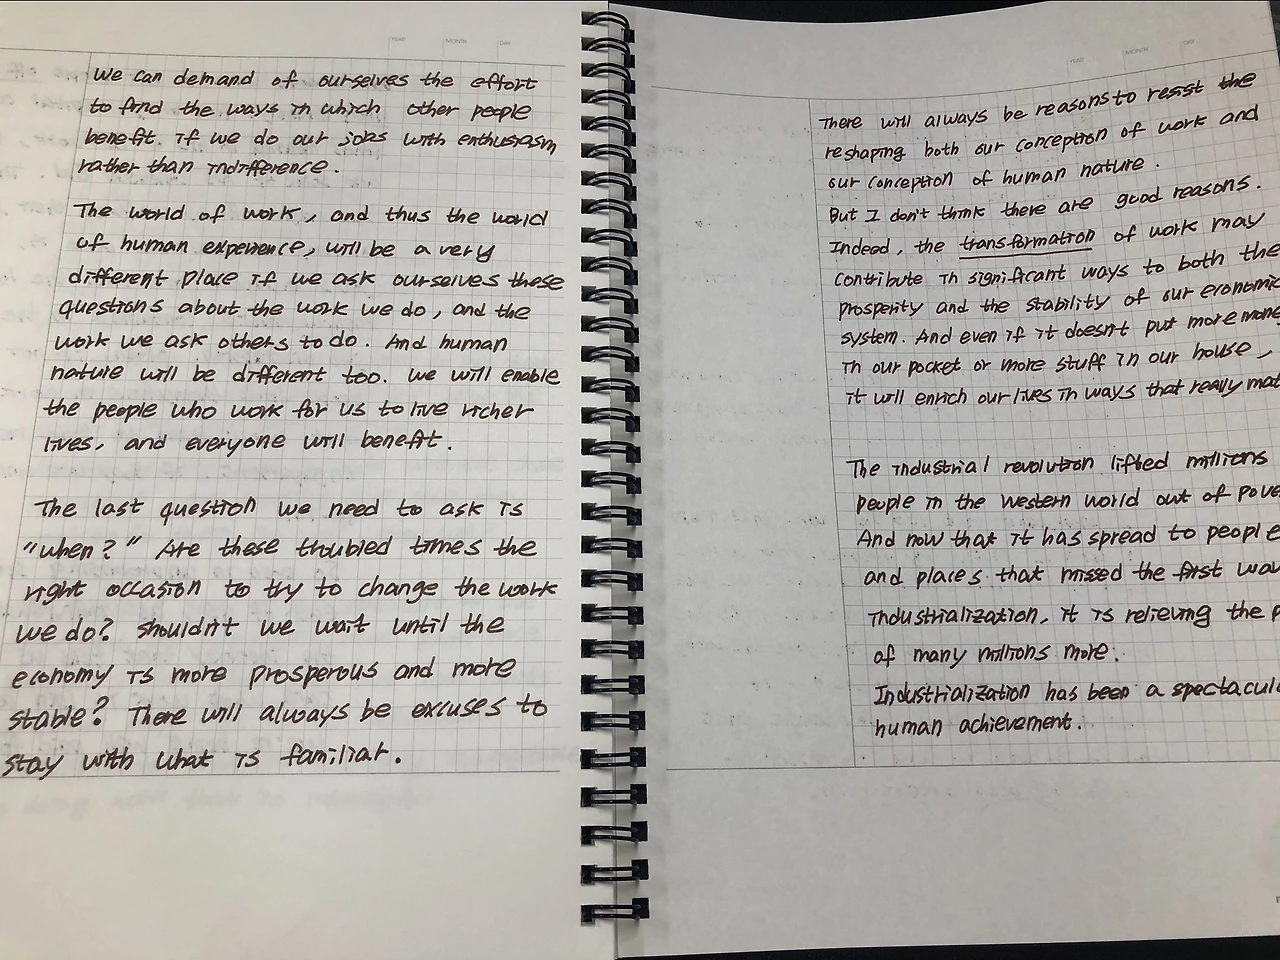 YEAR MONTH DAY
We can demand of ourselves the effort
to find the ways in which other people
benefit. if we do our jobs with enthusiasm
rather than indifference.
The world of work, and thus the world
of human experience, will be a very
different place if we ask ourselves these
questions about the work we do, and the
work we ask others to do. And human
nature will be different too. we will enable
the people who work for us to live richer
lives, and everyone will benefit.
The last question we need to ask is
"when?" Are these troubled times the
right occasion to try to change the work
we do? Shouldn't we wait until the
economy is more prosperous and more
stable? There will always be excuses to
stay with what is familiar.
YEAR MONTH DAY
There will always be reasons to resist the
reshaping both our conception of work and
our conception of human nature.
But I don't think there are good reasons.
Indeed, the transformation of work may
contribute in significant ways to both the
prosperity and the stability of our economic
system. And even if it doesn't put more
in our pocket or more stuff in our house,
it will enrich our lives in ways that really
The industrial revolution lifted millions
people in the western world out of
And now that it has spread to people
and places that missed the first
industrialization, it is relieving the
of many millions more.
Industrialization has been a
human achievement.